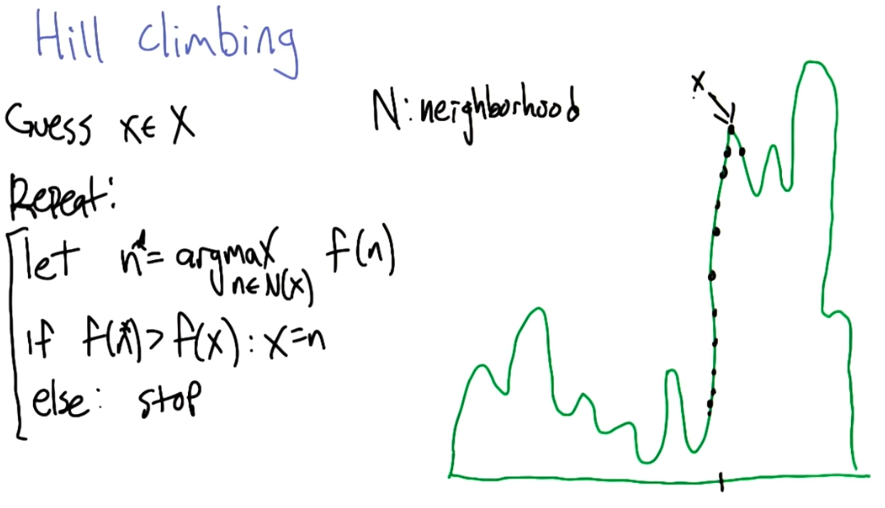 Hill climbing
Guess x∈X
N: neighborhood
x
Repeat:
let n*= argmax f(n)
n∈N(x)
if f(n*)>f(x): x=n
else: stop